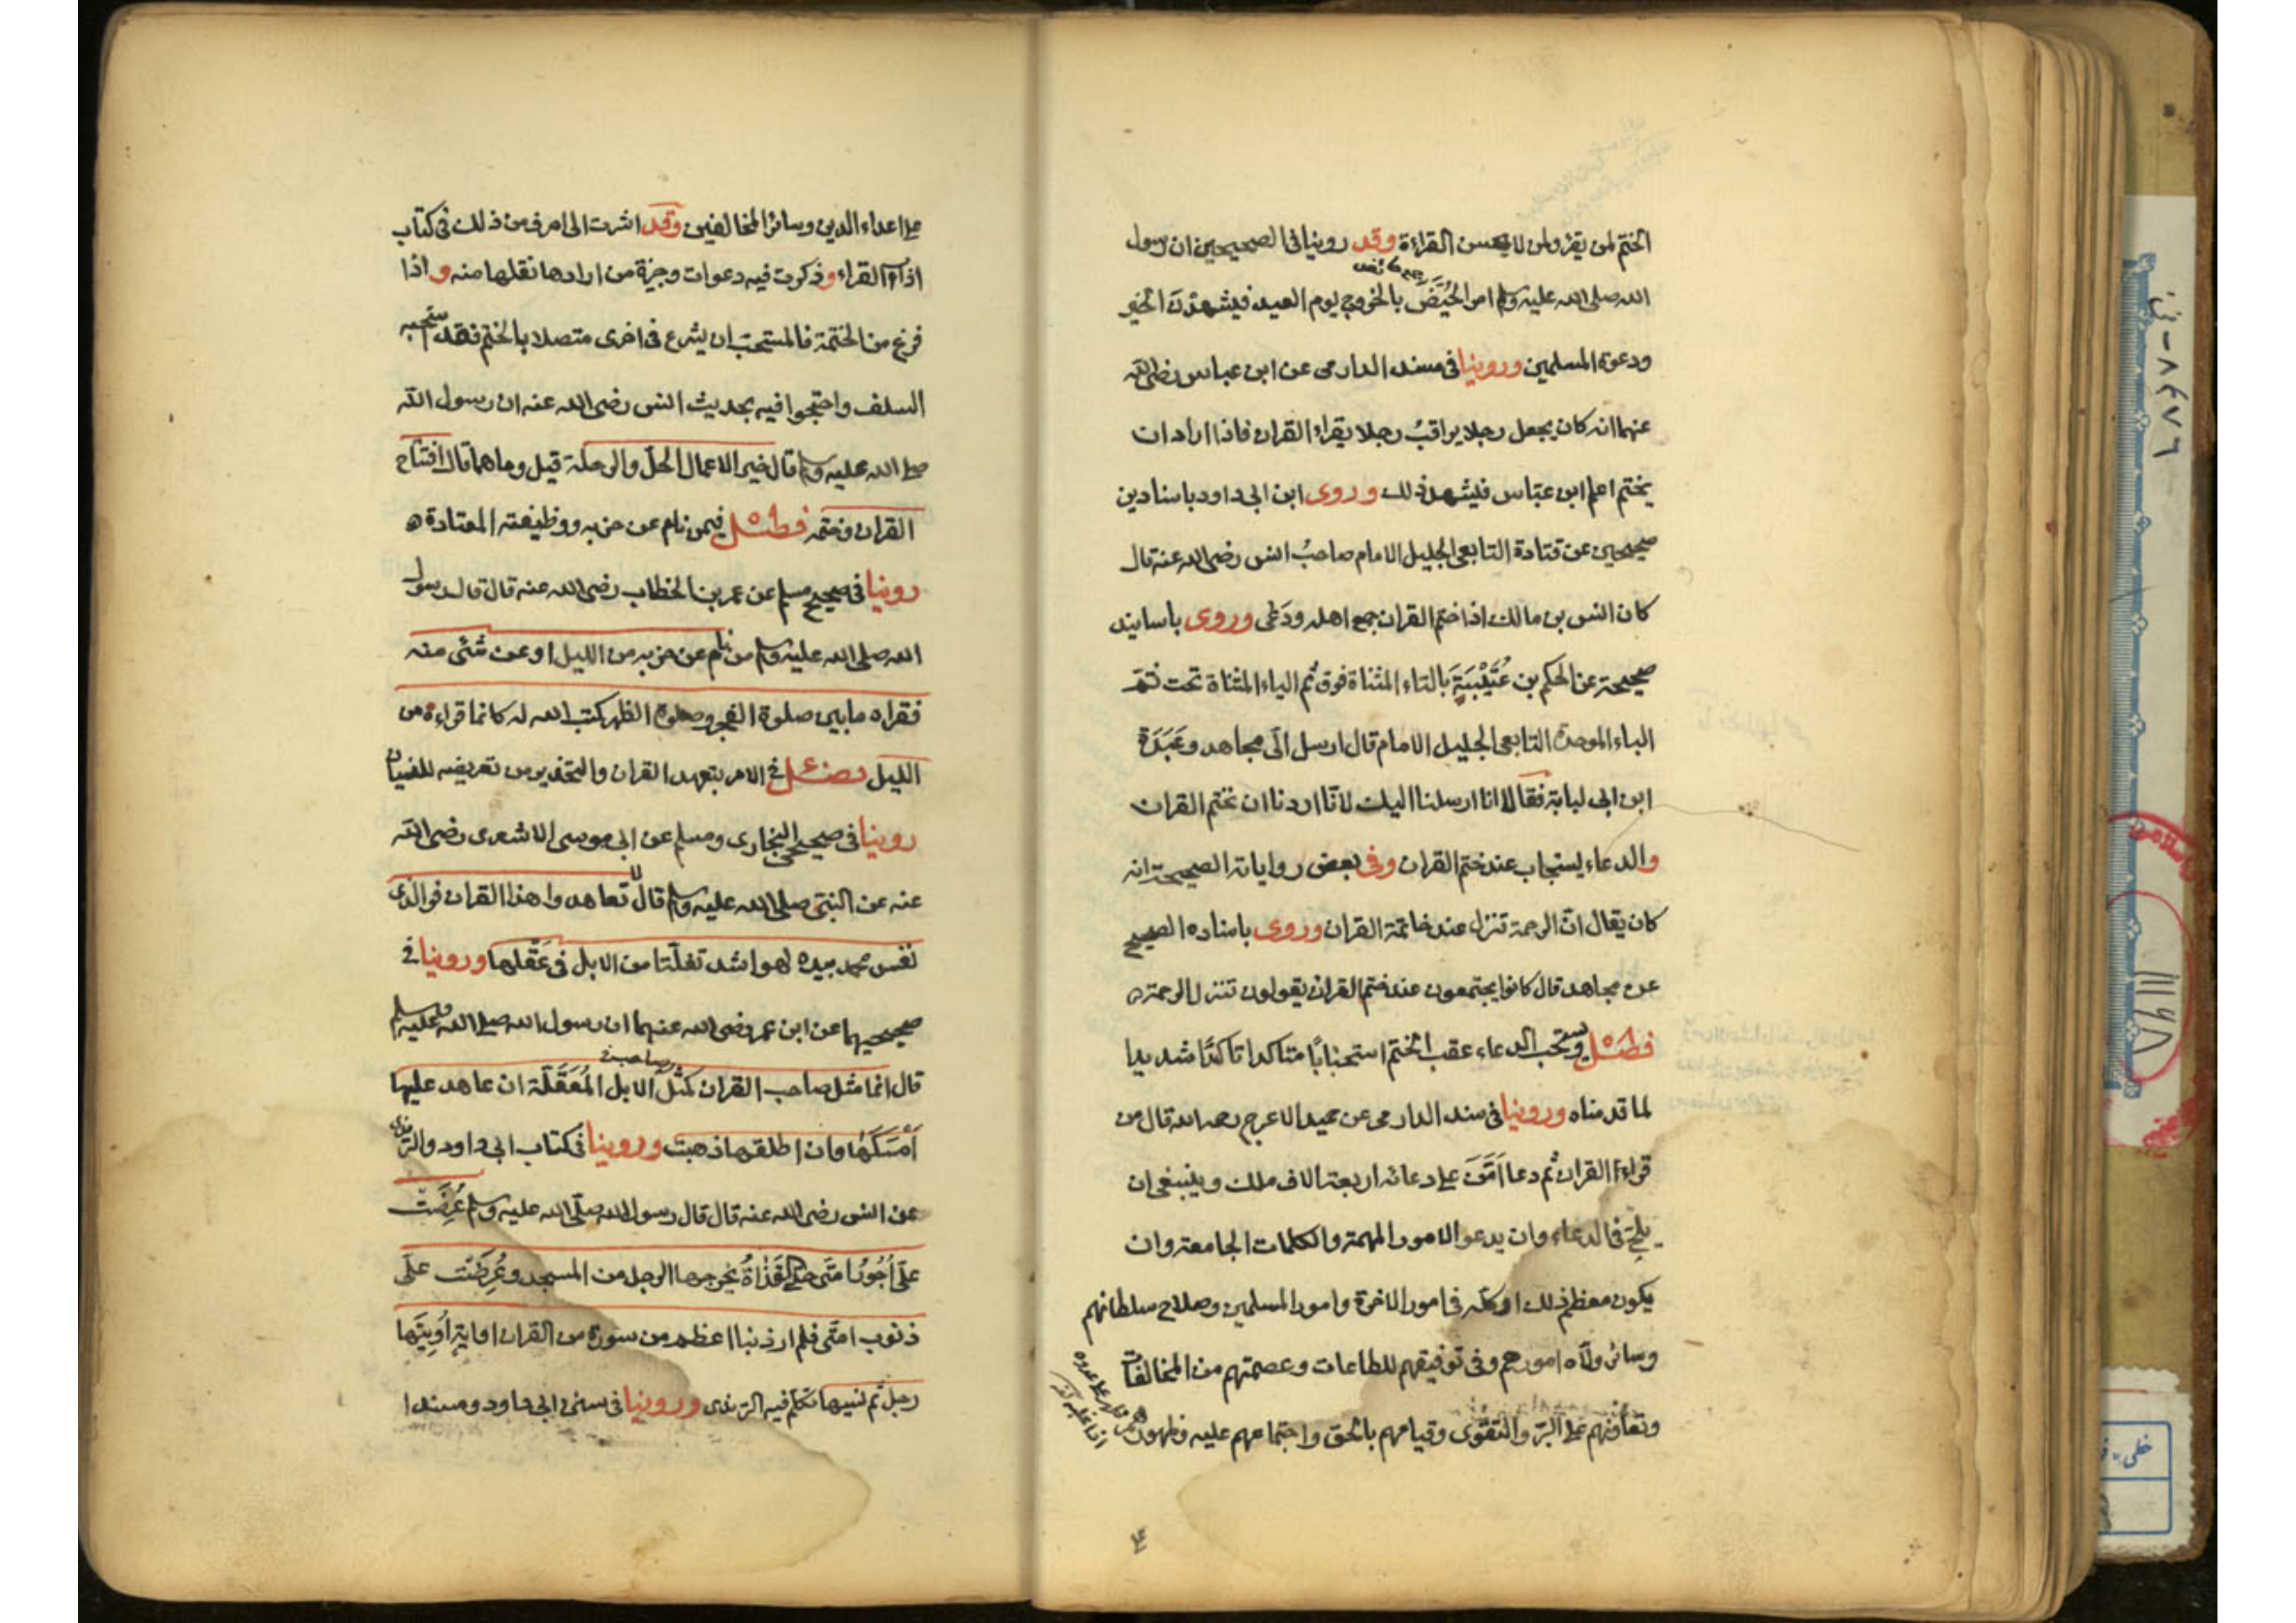 الختم لمن يقرولمن لا يحسن القراءة وقد روينا فى الصحيحين ان رسول
الله صلى الله عليه وسلم امر الحُيَّضَ بالخروج يوم العيد فيشهدن الخير
ودعوة المسلمين وروينا فى مسند الدارمى عن ابن عباس رضى الله
عنهما انه كان يجعل رجلا يراقبُ رجلا يقراء القران فاذا اراد ان
يختم اعلم ابن عبّاس فيشهد ذلك وروى ابن ابى داود باسنادين
صحيحين عن قتادة التابعى الجليل الامام صاحبُ انس رضى الله عنه قال
كان انس بن مالك اذا ختم القران جمع اهله ودَعى وروى باسانيد
صحيحة عن الحكم بن عُتَيْبَةَ بالتاء المثناة فوق ثم الياء المثناة تحت ثم
الباء الموحدة التابعى الجليل الامام قال ارسل الَى مجاهد وعَبَدَة
ابن ابى لبابة فقالا انا ارسلنا اليك لانّا اردنا ان نختم القران
والدعاء يستجاب عند ختم القران وفى بعض رواياته الصحيحة انه
كان يقال انّ الرحمة تنزل عند خاتمة القران وروى باسناده الصحيح
عن مجاهد قال كانوا يجتمعون عند ختم القران يقولون تنزل الرحمة
فصل ويستحب الدعاء عقب الختم استحبابًا متاكدا تاكدًا شديدا
لما قدمناه وروينا فى سند الدارمى عن حميد الاعرج رحمه الله قال من
قراءٔ القران ثم دعا اَمَّنَ على دعائه اربعة الاف ملك وينبغى ان
يلحّ فى الدعاء وان يدعو الامور المهمة والكلمات الجامعة وان
يكون معظم ذلك او كله فى امور الاخرة وامور المسلمين وصلاح سلطانهم
وسائر ولاه امورهم وفى توفيقهم للطاعات وعصمتهم من المخالفات
وتعاونهم على البّر والتقوى وقيامهم بالحق واجتماعهم عليه وظهورهم
على
على اعداء الدين وسائر المخالفين وقد اشرت الى احرف من ذلك فى كتاب
اداب القراء وذكرت فيه دعوات وجيزة من ارادها نقلها منه واذا
فرغ من الختمة فالمستحب ان يشرع فى اخرى متصلا بالختم فقد استحبه
السلف واحتجوا فيه بحديث انس رضى الله عنه ان رسول الله
صلى الله عليه وسلم قال خير الاعمال الحلّ والرحلة قيل وما هما قال افتتاح
القران وختمه فصل فيمن نام عن حزبه ووظيفته المعتادة
روينا فى صحيح مسلم عن عمر بن الخطاب رضى الله عنه قال قال رسول
الله صلى الله عليه وسلم من نام عن حزبه من الليل او عن شئى منه
فقراه ما بين صلوة الفجر وصلوة الظهر كتب الله له كانما قراءه من
الليل فصل فى الامر بتعهد القران والتحذير من تعريضه للنسيان
روينا فى صحيحى البخارى ومسلم عن ابى موسى الاشعرى رضى الله
عنه عن النبىّ صلى الله عليه وسلم قال تعاهدوا هذا القران فوالذى
نفس محمد بيده لهو اشد تفلّتا من الابل فى عُقُلها وروينا فى
صحيحيهما عن ابن عمر رضى الله عنهما ان رسول الله صلى الله عليه وسلم
قال انما مثل صاحب القران كمثل صاحب الابل المُعَقَّلَة ان عاهد عليها
اَمْسَكَها وان اطلقها ذهبت وروينا فى كتاب ابى داود والترمذى
عن انس رضى الله عنه قال قال رسول الله صلّى الله عليه وسلم عُرِضَتْ
علَىّ اُجُورُ امتى حتى القَذَاةُ يخرجها الرجل من المسجد وعُرِضَتْ علَى
ذنوب امتى فلم ار ذنبا اعظم من سورة من القران او اية اُوتِيَها
رجل ثم نسيها تكلم فيه الترمذى وروينا فى سنن ابى داود ومسند ا